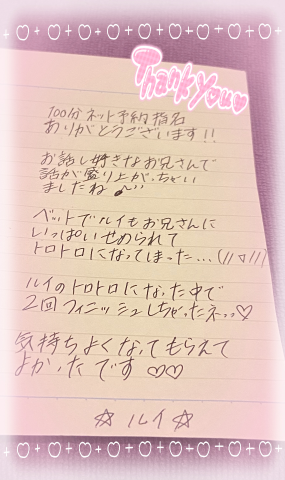 Thank You♡
100分ネット予約指名
ありがとうございます!!
お話し好きなお兄さんで
話が盛り上がっちゃい
ましたね♪
ベットでルイもお兄さんに
いっぱいせめられて
トロトロになってしまった...(//▽//)
ルイのトロトロになった中で
2回フィニッシュしちゃったネっ♡
気持ちよくなってもらえて
よかったです♡♡
☆ルイ☆